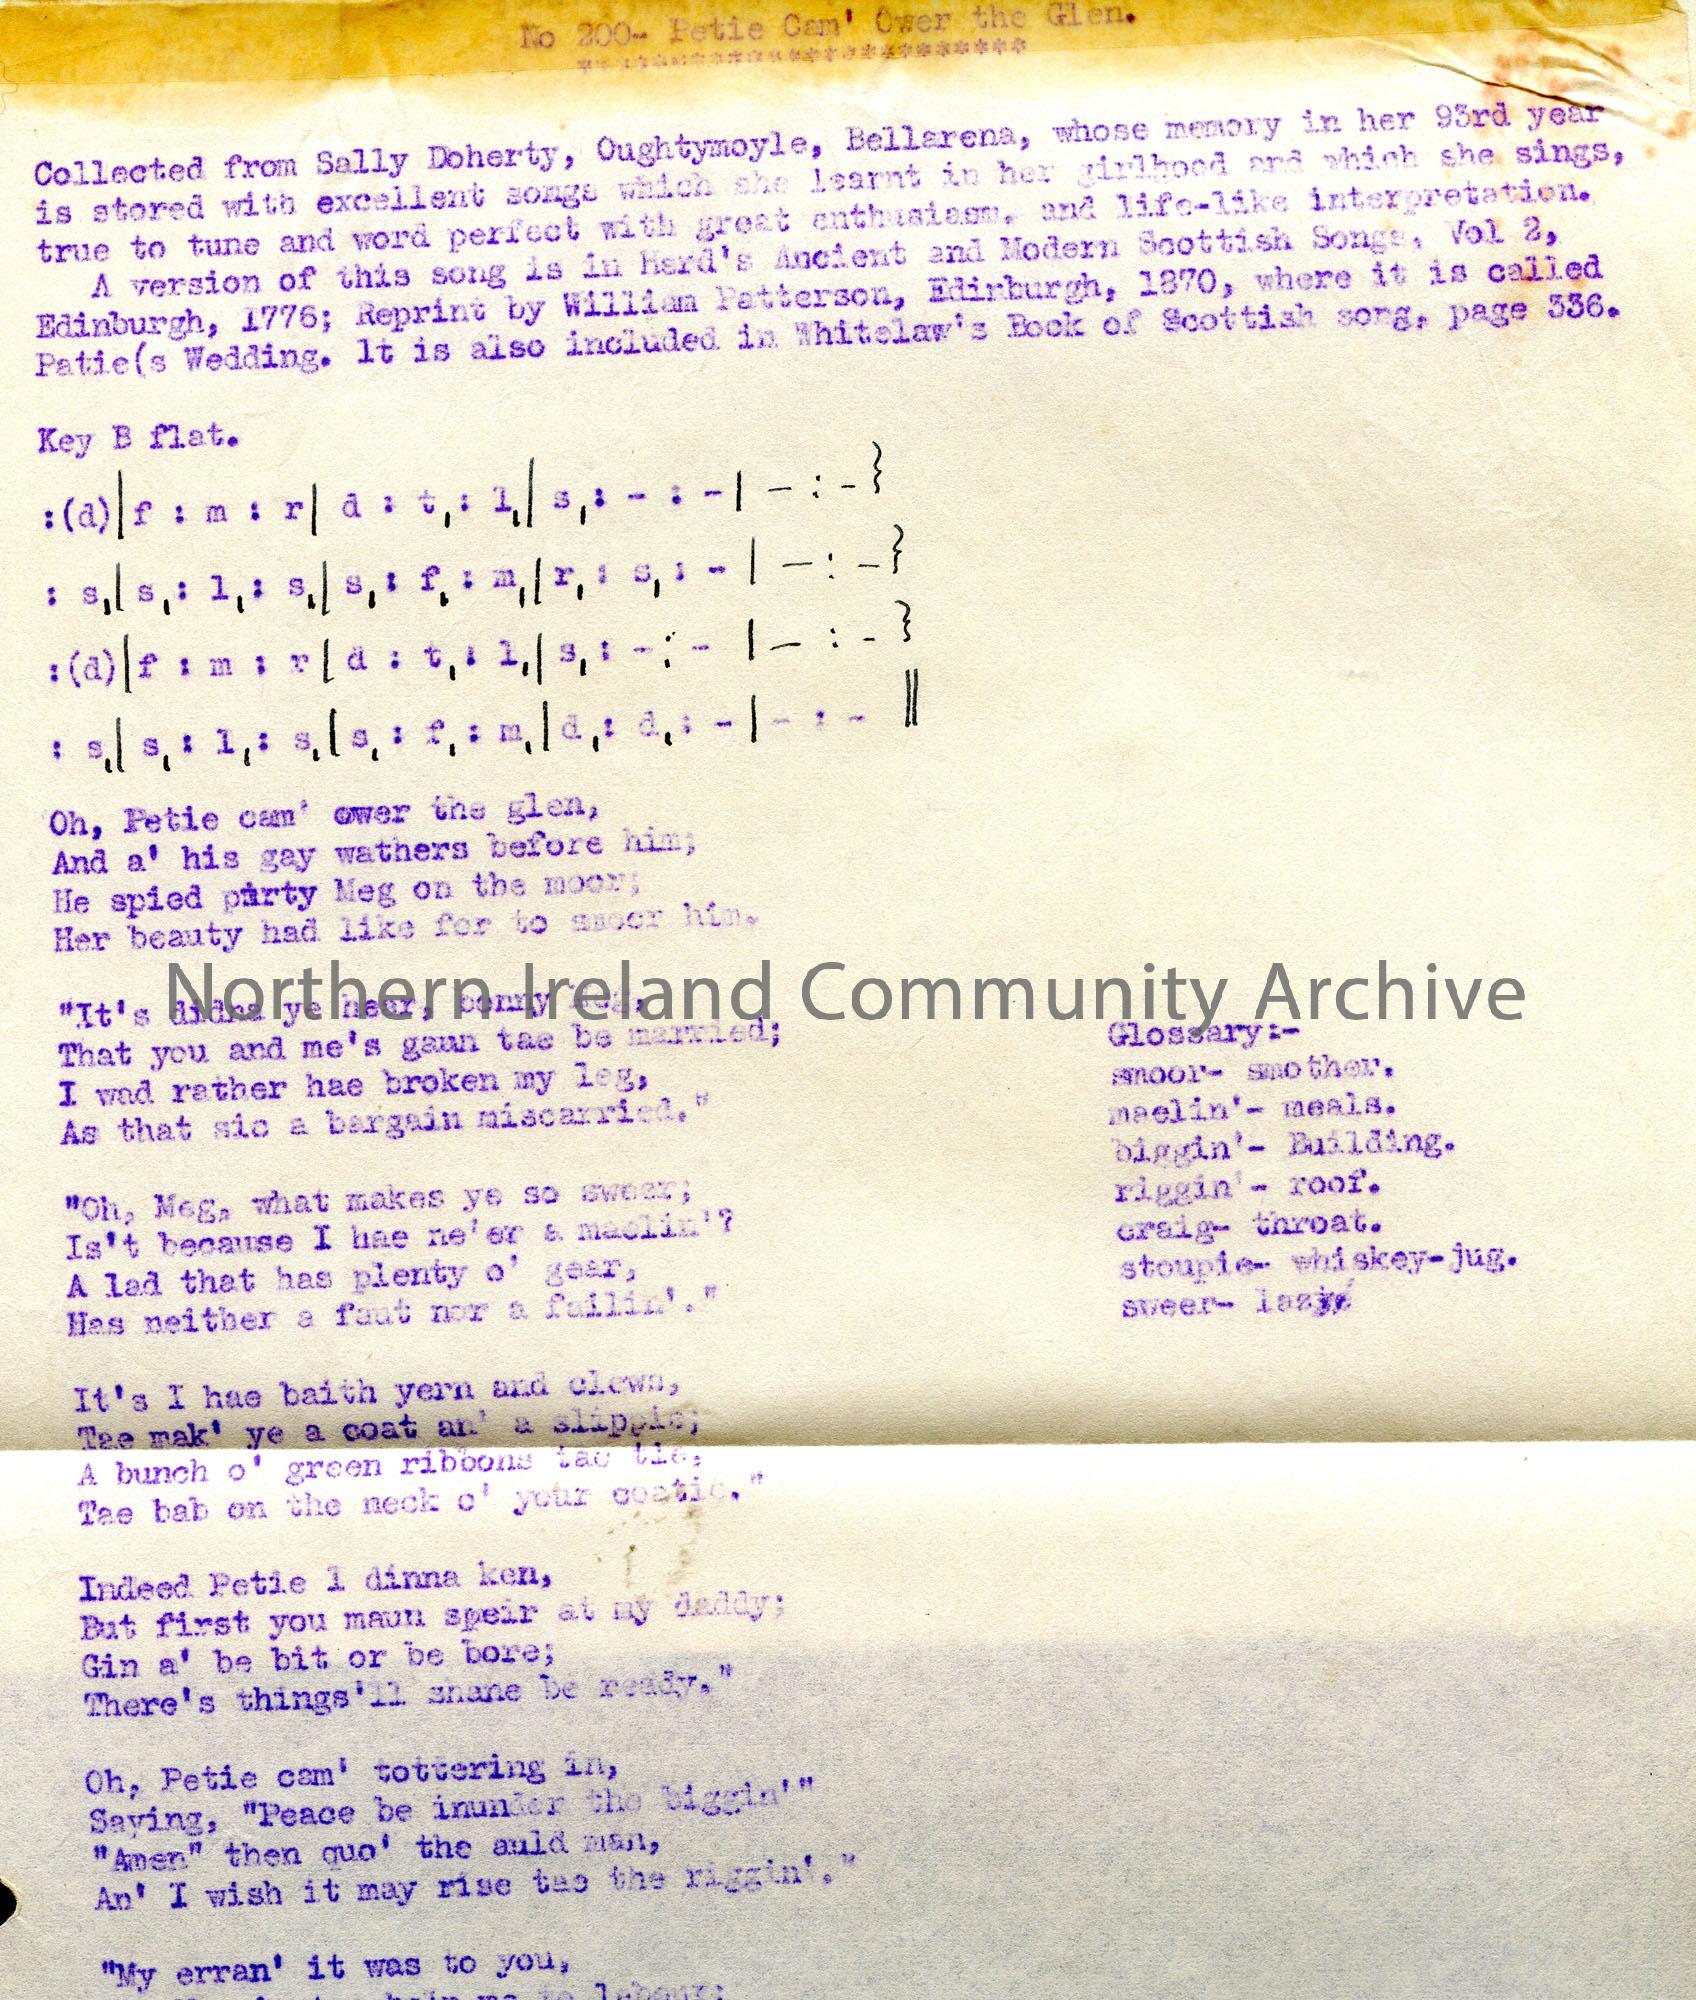 No 200- Petie Cam' Ower the Glen.
************************
Collected from Sally Doherty, Oughtymoyle, Bellarena, whose memory in her 93rd year
is stored with excellent songs which she learnt in her girlhood and which she sings,
true to tune and word perfect with great enthusiasm. and life-like interpretation.
A version of this song is in Herd's Ancient and Modern Scottish Songs, Vol 2,
Edinburgh, 1776; Reprint by William Patterson, Edinburgh, 1870, where it is called
Patie(s Wedding. lt is also included in Whitelaw's Book of Scottish song, page 336.
Key B flat.
:(d)|f : m : r| d : t, : l,| s, : - : -| - : - }
: s,| s, : l, : s,| s, : f, : m,| r, : s, : - | - : - }
:(d)|f : m : r| d : t, : l,| s, : - : - | - : - }
: s,| s, : l, : s,| s, : f, : m,| d, : d, : -| - : - ||
Oh, Petie cam' ower the glen,
And a' his gay wathers before him;
He spied pirty Meg on the moor;
Her beauty had like for to smoor him.
Northern Ireland Community Archive
"It's didna ye hear, bonny Meg,
That you and me's gaun tae be married;
I wad rather hae broken my leg,
As that sic a bargain miscarried."
"Oh, Meg, what makes ye so sweer;
Is't because I hae ne'er a maelin'?
A lad that has plenty o' gear,
Has neither a faut nor a failin'."
It's I hae baith yern and clews,
Tae mak' ye a coat an' a slippie;
A bunch o' green ribbons tae tie,
Tae bab on the neck o' your coatie."
Indeed Petie l dinna ken,
But first you maun speir at my daddy;
Gin a' be bit or be bore;
There's things'll shane be ready."
Oh, Petie cam' tottering in,
Saying, "Peace be inunder the biggin'"
"Amen" then quo' the auld man,
An' I wish it may rise tae the riggin'."
"My erran' it was to you,
Glossary:-
smoor- smother.
maelin'- meals.
biggin'- Building.
riggin'- roof.
craig- throat.
stoupie- whiskey-jug.
sweer- lazy